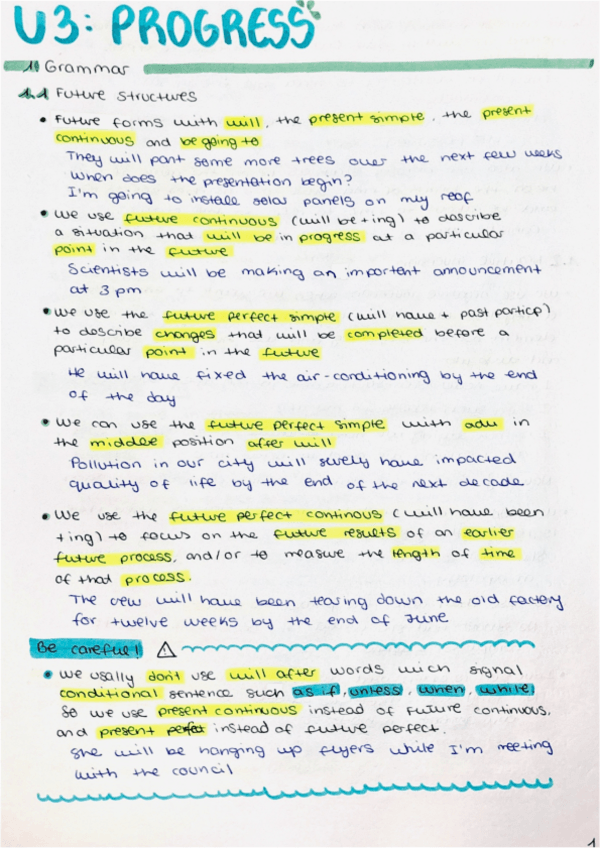 U3: PROGRESS
1| Grammar
1.1 Future structures
• Future forms with will, the present simple, the present
continuous and be going to
They will pant some more trees over the next few weeks
When does the presentation begin?
I'm going to install solar panels on my roof
• We use future continuous (will be + ing) to describe
a situation that will be in progress at a particular
point in the future
Scientists will be making an important announcement
at 3 pm
• We use the future perfect simple (will have + past particp)
to describe changes that will be completed before a
particular point in the future
He will have fixed the air-conditioning by the end
of the day
• We can use the future perfect simple with adv in
the middle position after will
Pollution in our city will surely have impacted
quality of life by the end of the next decade
• We use the future perfect continous (will have been
+ing) to focus on the future results of an earlier
future process, and/or to measure the length of time
of that process.
The crew will have been tearing down the old factory
for twelve weeks by the end of June
Be careful!
• We usally don't use will after words wich signal
conditional sentence such as if, unless, when, while
So we use present continuous instead of future continuous,
and present perfect instead of future perfect.
She will be hanging up flyers while I'm meeting
with the council
1